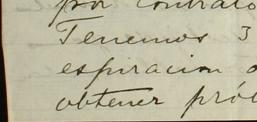 por contrato
Tenemos 3
espiracion
obtener